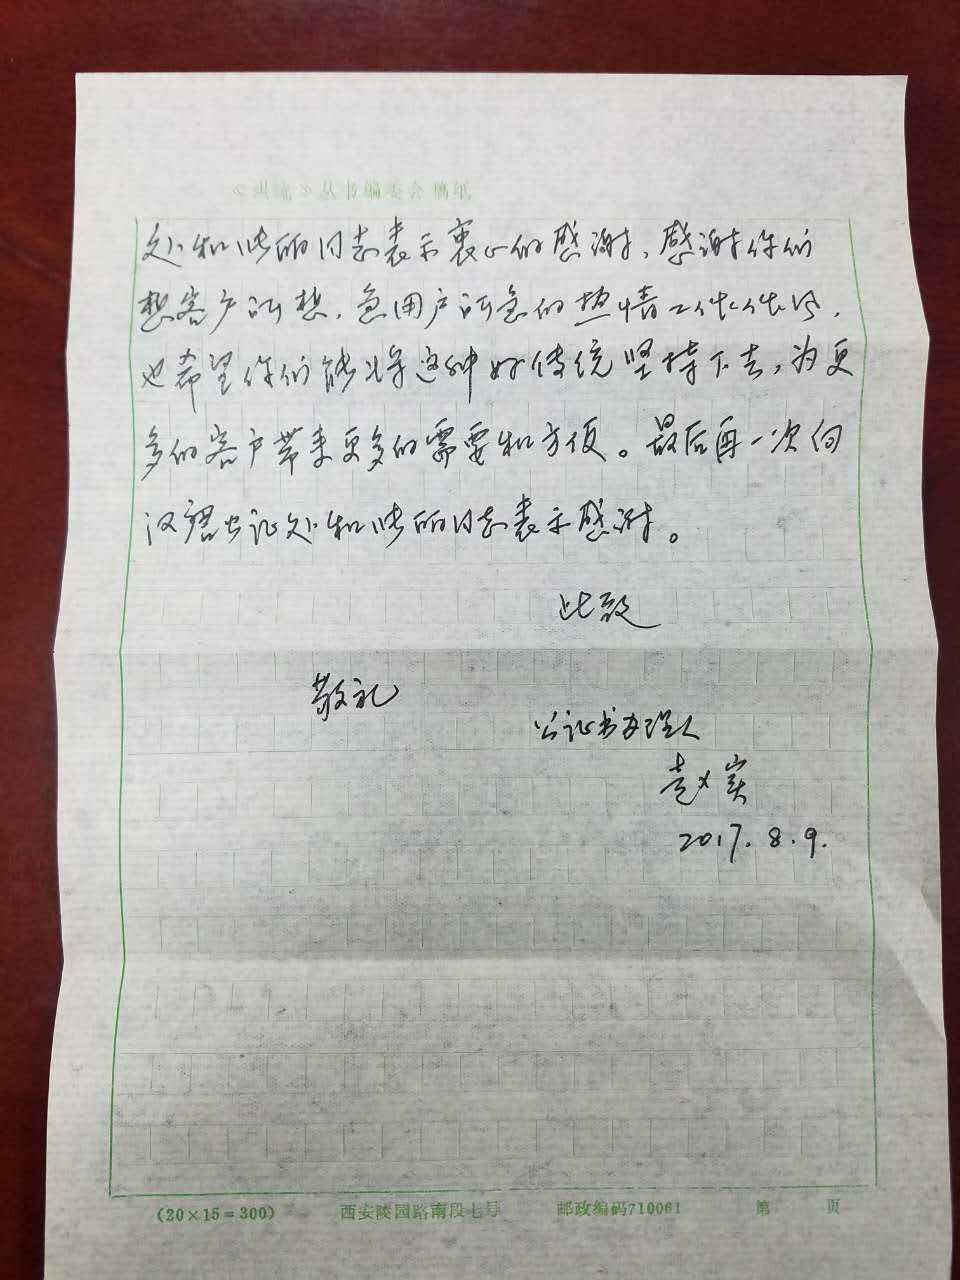 《洪流》丛书编委会稿纸
处和张丽同志表示衷心的感谢，感谢你们
想客户所想，急用户所急的热情工作作风，
也希望你们能将这种好传统坚持下去，为更
多的客户带来更多的需要和方便。最后再一次向
汉唐公证处和张丽同志表示感谢。
此致
敬礼
公证书办理人
赵
2017.8.9.
(20×15=300) 西安陵园路南段七号 邮政编码710061 第 页